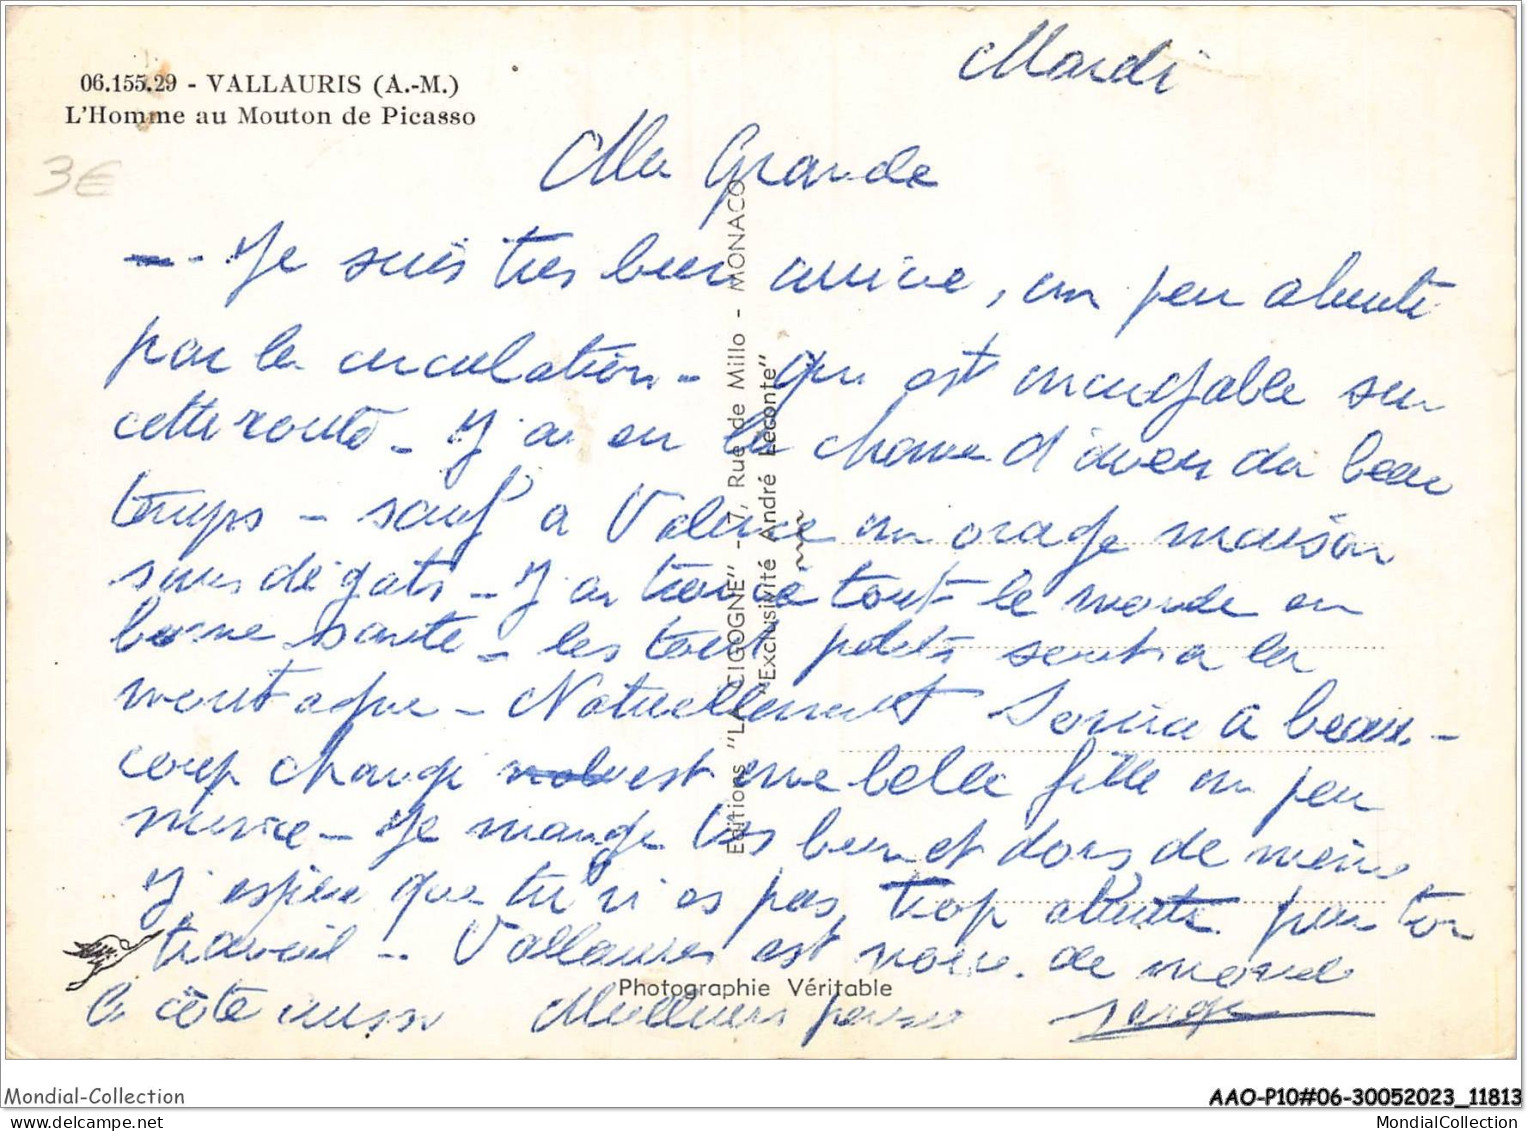 06.155.29 - VALLAURIS (A.-M.)
L'Homme au Mouton de Picasso
3€
Mardi
Ma Grande
- Je suis très bien arrivé, un peu abruti
par la circulation - qui est incroyable sur
cette route - J'ai eu la chance d'avoir du beau
temps - sauf à Valence un orage maison
sans dégats - J'ai trouvé tout le monde en
bonne santé - les tout petits sont à la
montagne - Naturellement a beau-
coup changé est une belle fille un peu
mince - Je mange très bien et dors de même
J'espère que tu n'es pas trop abrutie par ton
travail - Vallauris est noire de monde
la côte aussi Meilleures pensées Serge
Editions "LA CIGOGNE" - 7, Rue de Millo - MONACO
"Exclusivité André Leconte"
Photographie Véritable
Mondial-Collection
AAO-P10#06-30052023_11813
MondialCollection